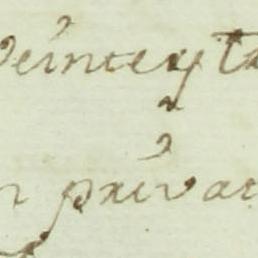 veinte y t
n privar